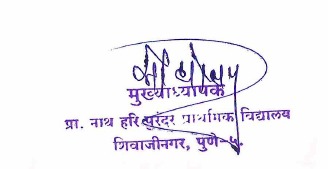 मुख्याध्यापक
प्रा. नाथ हरि पुरंदर प्राथमिक विद्यालय
शिवाजीनगर, पुणे-५.